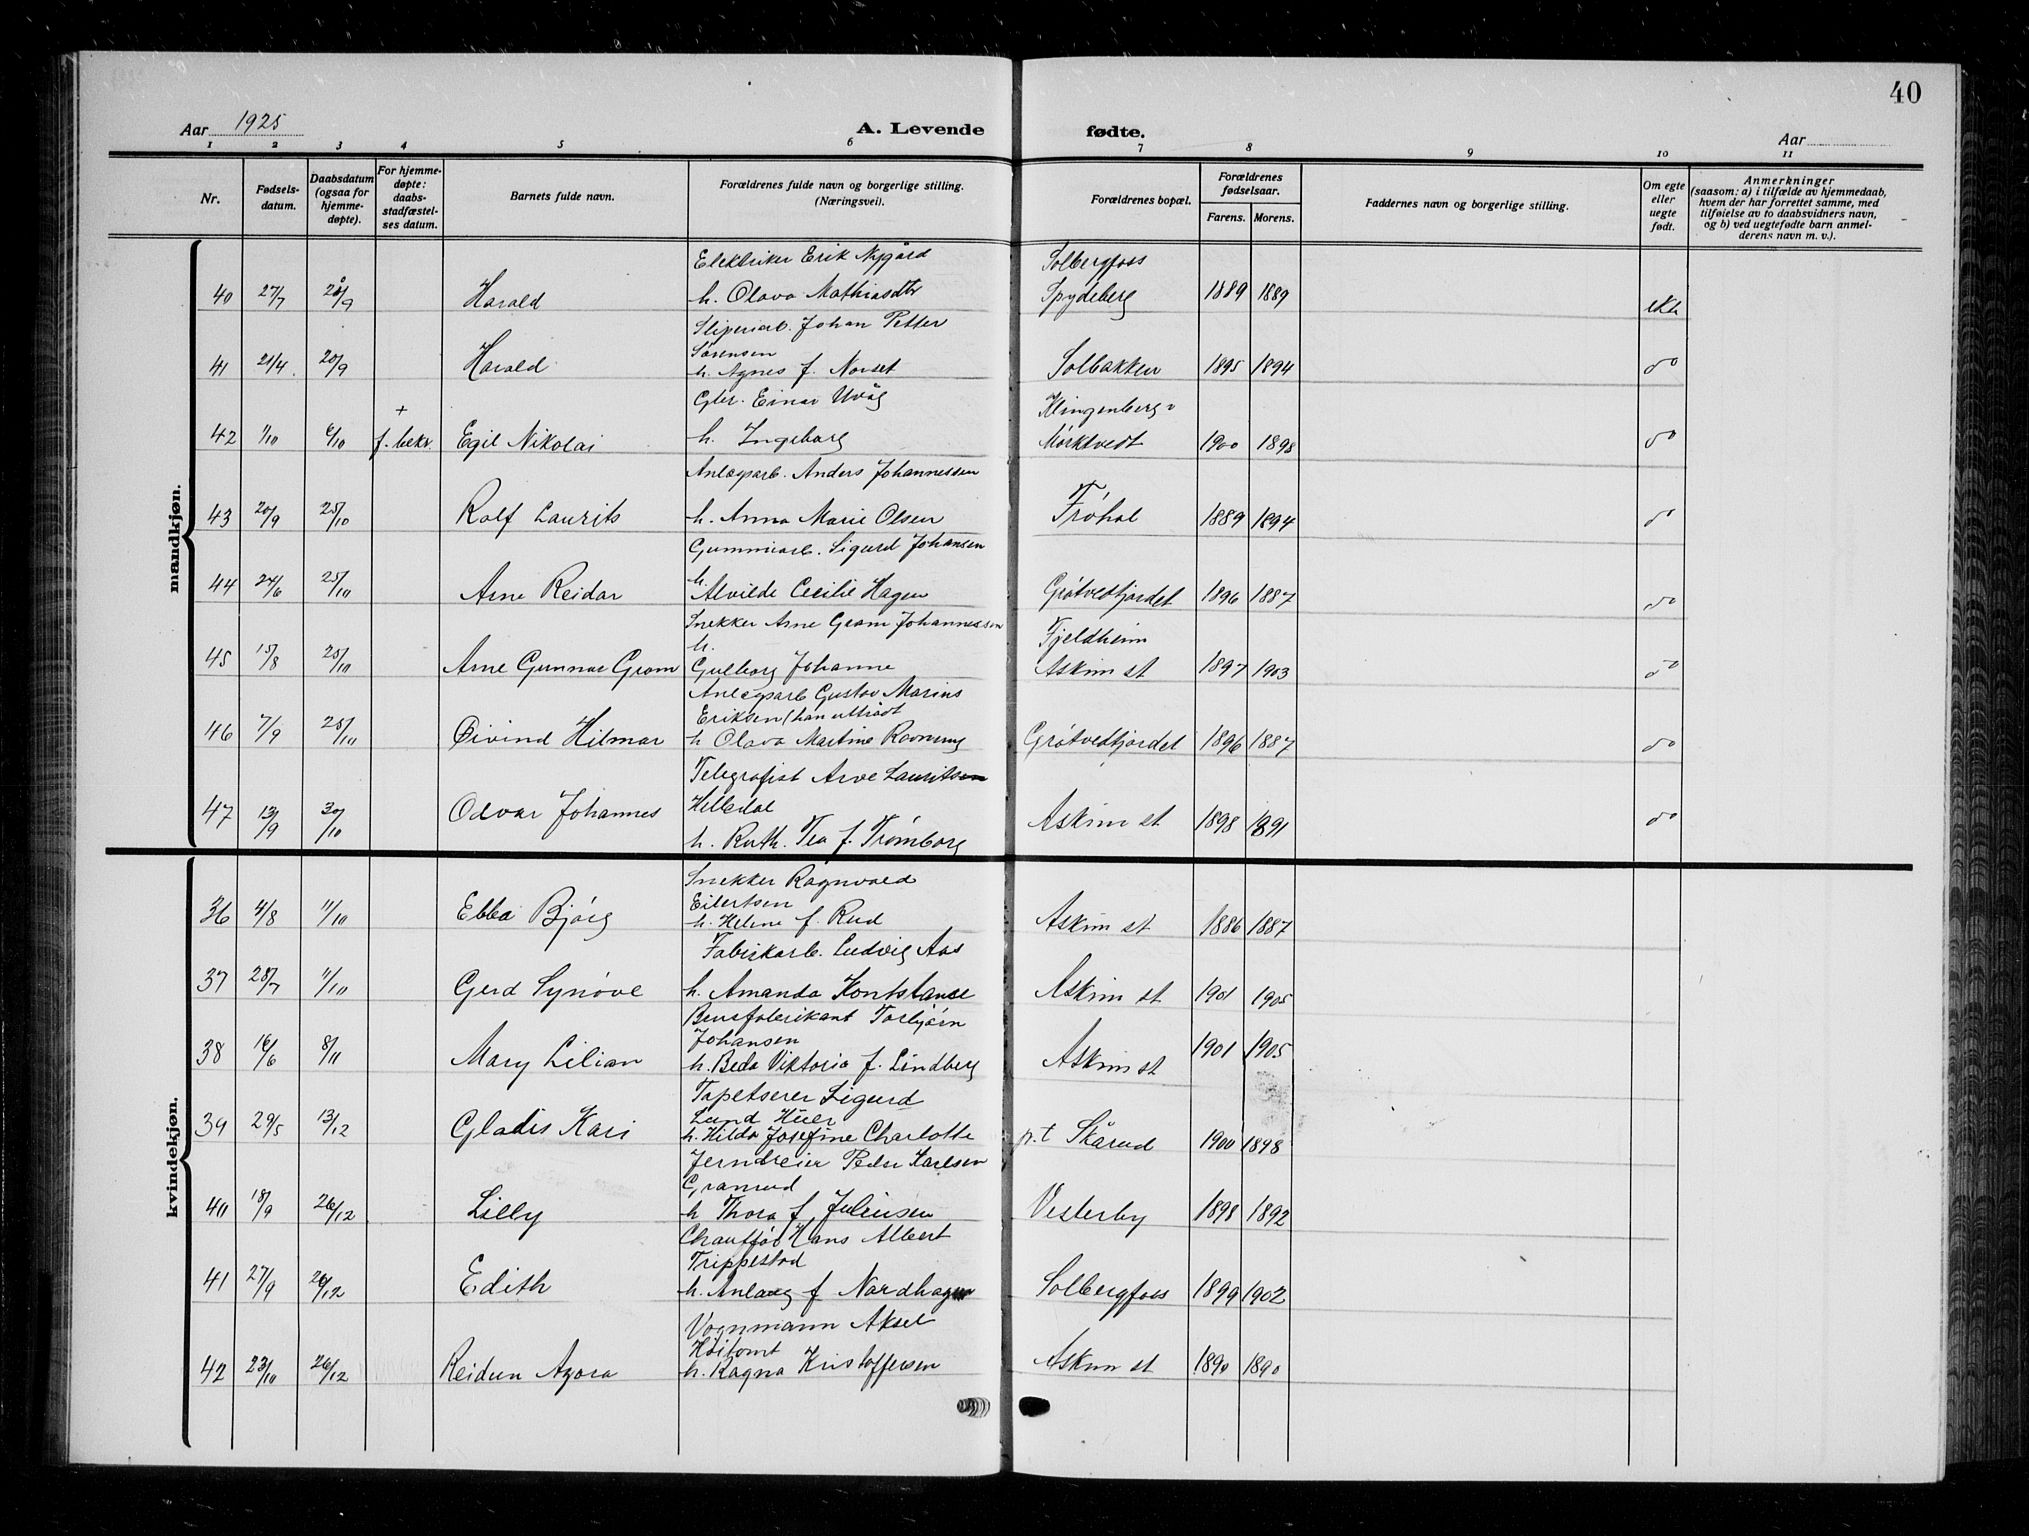 40
Aar 1925
A. Levende
fødte.
Aar
1 2 3 4 5 6 7 8 9 10 11
Nr.
Fødsels-
datum.
Daabsdatum
(ogsaa for
hjemme-
døpte).
For hjemme-
døpte:
daabs-
stadfæstel-
ses datum.
Barnets fulde navn.
Forældrenes fulde navn og borgerlige stilling.
(Næringsvei).
Forældrenes bopæl.
Forældrenes
fødselsaar.
Farens. Morens.
Faddernes navn og borgerlige stilling.
Om egte
eller
uegte
født.
Anmerkninger
(saasom: a) i tilfælde av hjemmedaab,
hvem der har forrettet samme, med
tilføielse av to daabsvidners navn,
og b) ved uegtefødte barn anmel-
derens navn m. v.).
mandkjøn.
Elektriker Erik Nygård Solbergfoss
40 27/7 20/9 Harald h. Olava Mathiasdtr Spydeberg 1889 1889 ekte
Sliperiarb. Johan Petter
Sørensen
41 21/4 20/9 Harald h. Agnes f. Norset Solbakken 1895 1894 do
Gbr. Einar Uvåg Klingenberg
+
42 1/10 6/10 f. bekr. Egil Nikolai h. Ingeborg Mørktvedt 1900 1898 do
Anlegsarb. Anders Johannessen
43 20/9 25/10 Rolf Laurits h. Anna Marie Olsen Frøhol 1889 1894 do
Gummiarb. Sigurd Johansen
h.
44 24/6 25/10 Arne Reidar Alvilde Cecilie Hagen Grøtvedtjordet 1896 1887 do
Snekker Arne Gram Johannessen Fjeldheim
h.
45 15/8 25/10 Arne Gunnar Gram Gulborg Johanne Askim st 1897 1903 do
Anlegsarb Gustav Marius
Eriksen (han uttrådt
46 7/9 25/10 Øivind Hilmar h Olava Martine Ravnung Grøtvedtjordet 1896 1887 do
Telegrafist Arve Lauritsen
Helledal
47 13/9 30/10 Odvar Johannes h. Ruth Tea f. Trømborg Askim st 1898 1891 do
kvindekjøn.
Snekker Ragnvald
Eilertsen
36 4/8 11/10 Ebba Bjørg h. Helene f. Rud Askim st 1886 1887
Fabrikarb. Ludvig Aas
37 28/7 11/10 Gerd Synøve h. Amanda Konstanse Askim st 1901 1905
Brusfabrikant Torbjørn
Johansen
38 16/6 8/11 Mary Lilian h. Beda Viktoria f. Lindberg Askim st 1901 1905
Tapetserer Sigurd
Lund Huer
39 29/5 13/12 Gladis Kari h. Hilda Josefine Charlotte p.t Skårud 1900 1898
Jerndreier Peder Karlsen
Granrud
40 18/9 26/12 Lilly h Thora f. Juliussen Vesterby 1898 1892
Chauffør Hans Albert
Trippestad
41 27/9 26/12 Edith h. Anlaug f Nordhagen Solbergfoss 1899 1902
Vognmann Aksel
Høitomt
42 23/10 26/12 Reidun Azora h. Ragna Kristoffersen Askim st 1890 1890